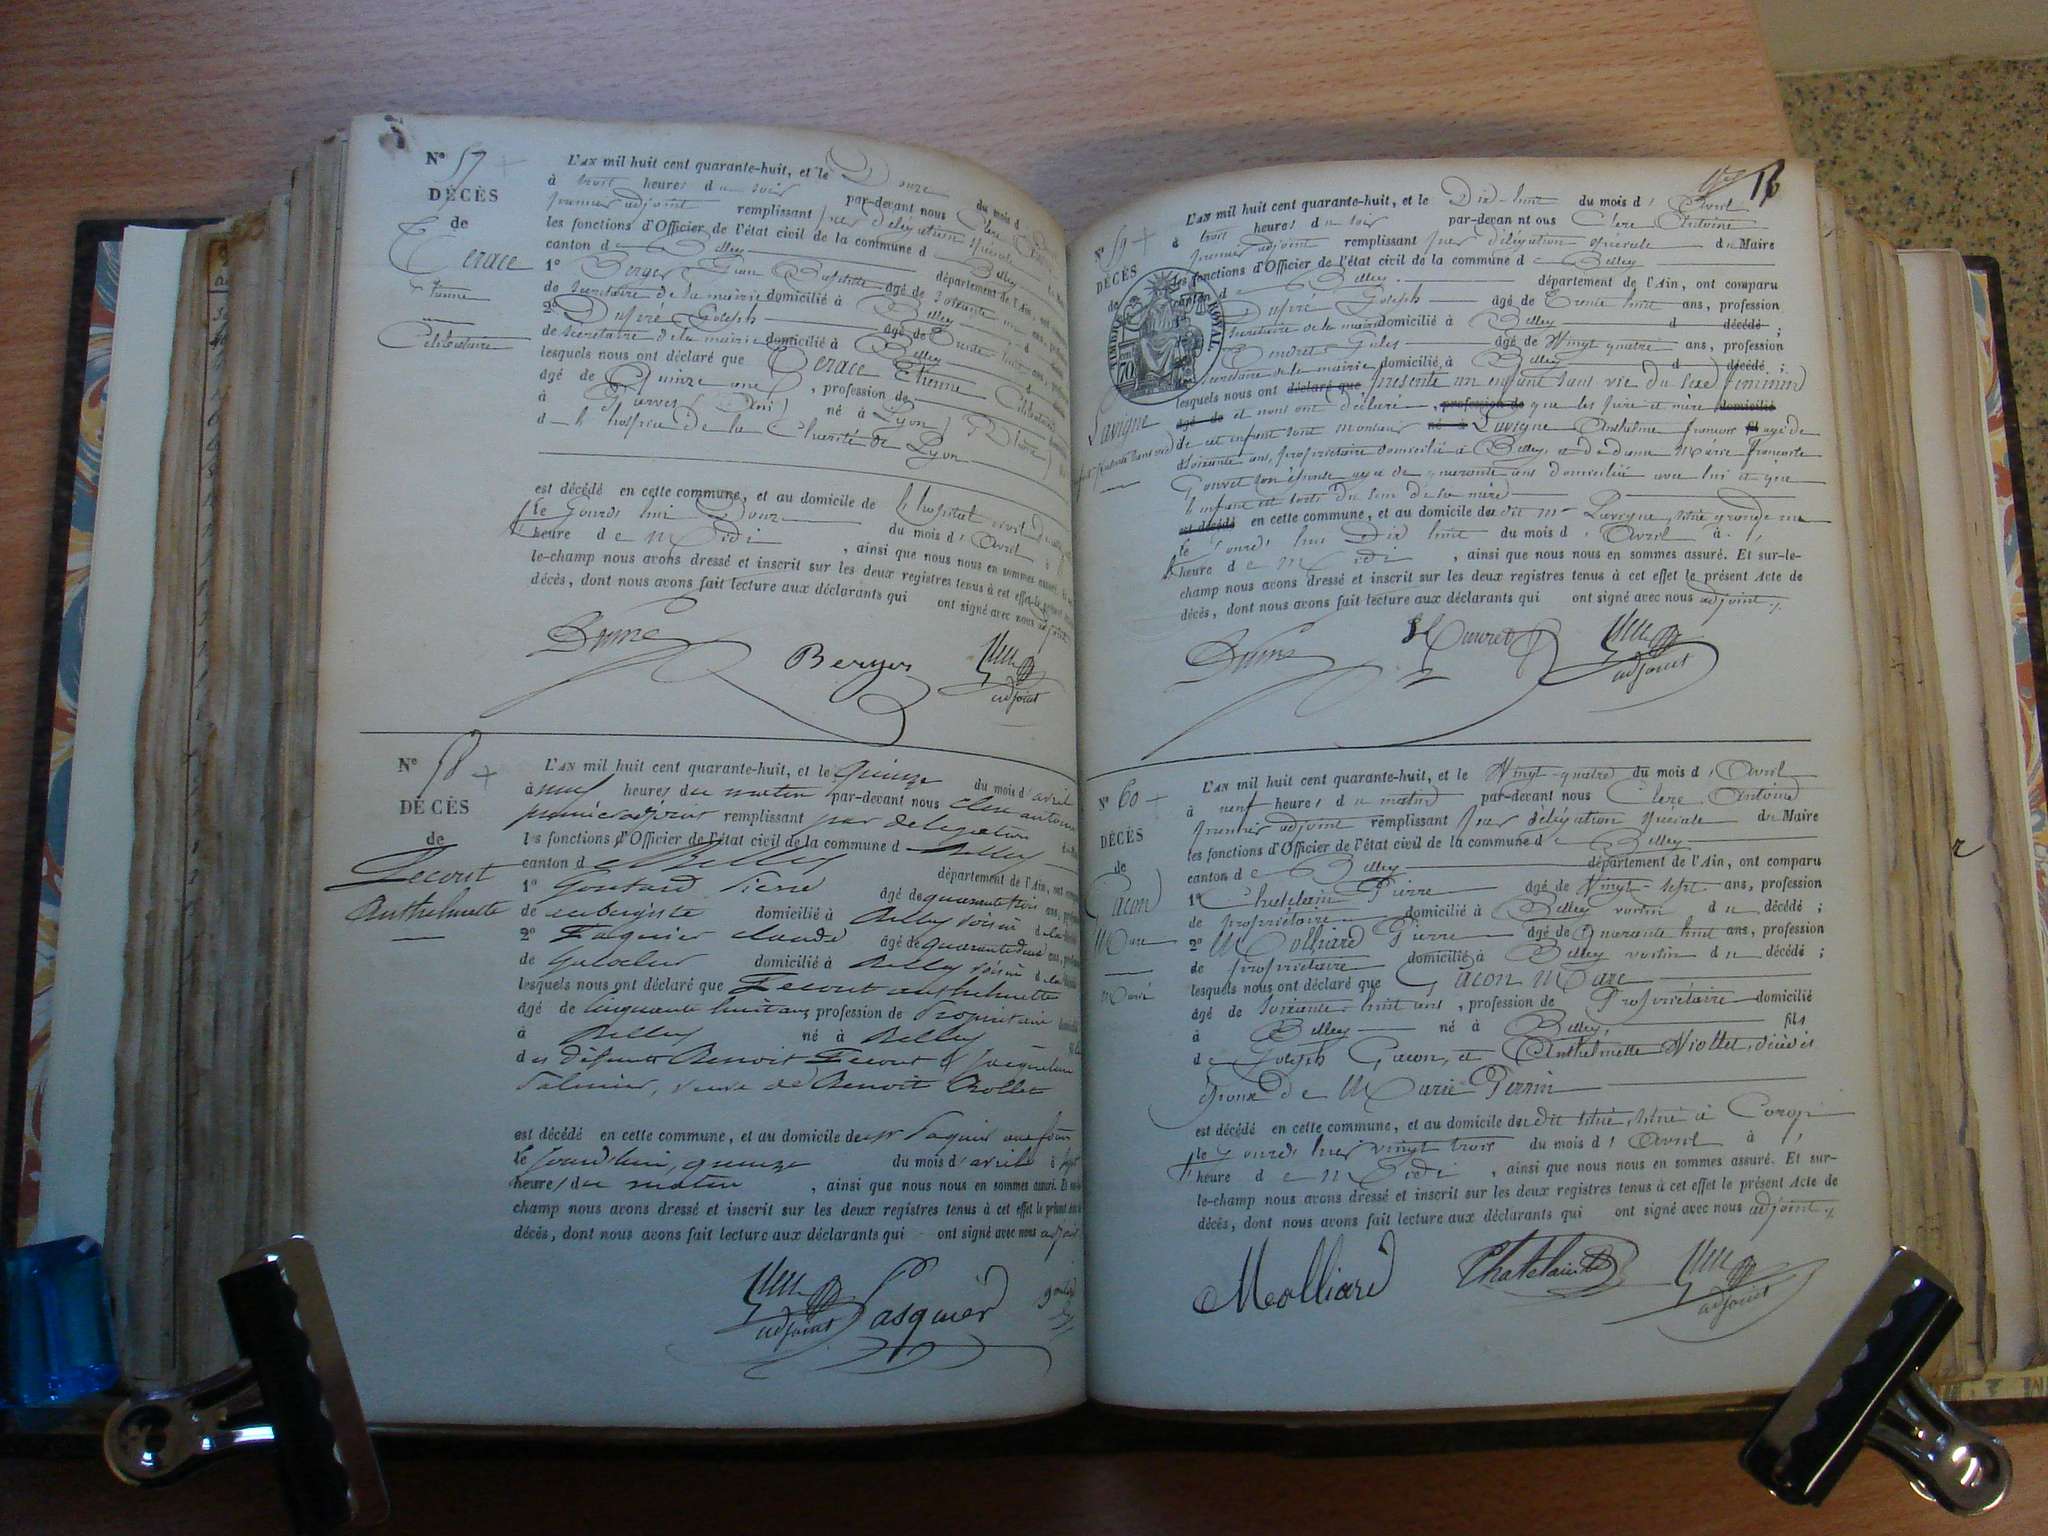 N° 57
DÉCÈS
de
Terace
Etienne
Célibataire
L'AN mil huit cent quarante-huit, et le Douze du mois d
à trois heures du soir par-devant nous Clerc
premier adjoint remplissant par délégation spéciale
les fonctions d'Officier de l'état civil de la commune de Belley
canton de Belley département de l'Ain, ont
1° Berger Jean Baptiste âgé de soixante
de secrétaire de la mairie domicilié à Belley
2° Dupré Joseph âgé de Trente huit ans,
de secrétaire de la mairie domicilié à Belley
lesquels nous ont déclaré que Terace Etienne Célibataire
âgé de Quinze ans, profession de
à (Ain) né à Lyon (Rhône)
de l'hospice de la Charité de Lyon
est décédé en cette commune, et au domicile de l'hospital civil
le Jourd'hui Douze du mois d'Avril à
heure de Midi, ainsi que nous nous en sommes assuré. Et
le-champ nous avons dressé et inscrit sur les deux registres tenus à cet effet le présent
décès, dont nous avons fait lecture aux déclarants qui ont signé avec nous adjoint
Berger
adjoint
N° 58
DÉCÈS
de
Lecout
Anthelmette
L'AN mil huit cent quarante-huit, et le quinze du mois d'avril
à neuf heures du matin par-devant nous Clerc antoine
premier adjoint remplissant par délégation
les fonctions d'Officier de l'état civil de la commune de Belley
canton de Belley département de l'Ain, ont
1° Goutard Pierre âgé de quarante trois ans,
de aubergiste domicilié à Belley voisin de la
2° Pasquier claude âgé de quarante deux ans,
de domicilié à Belley voisin de la
lesquels nous ont déclaré que Lecout anthelmette
âgé de cinquante huit ans profession de Propriétaire
à Belley né à Belley
des défunts Benoit Lecout & Jacqueline
Palmier, veuve de Benoit Rollet
est décédé en cette commune, et au domicile de
le jourd'hui quinze du mois d'avril à sept
heures du matin, ainsi que nous nous en sommes assuré. Et
champ nous avons dressé et inscrit sur les deux registres tenus à cet effet le présent
décès, dont nous avons fait lecture aux déclarants qui ont signé avec nous adjoint
adjoint Pasquier
N° 59
DÉCÈS
de
Lavigne
TIMBRE ROYAL
70
L'AN mil huit cent quarante-huit, et le Dix-huit du mois d'Avril
à trois heures du soir par-devant nous Clerc Antoine
premier adjoint remplissant par délégation spéciale du Maire
les fonctions d'Officier de l'état civil de la commune de Belley
canton de Belley département de l'Ain, ont comparu
Dupré Joseph âgé de Trente huit ans, profession
secrétaire de la mairie domicilié à Belley d décédé ;
Jules âgé de Vingt quatre ans, profession
secrétaire de la mairie domicilié à Belley d décédé ;
lesquels nous ont déclaré que présenté un enfant sans vie du sexe féminin
âgé de et nous ont déclaré, profession de que les père et mère domicilié
de cet enfant sont monsieur né à Lavigne Anthelme françois âgé de
soixante ans, propriétaire domicilié à Belley, et de dame Marie françoise
Gouvet son épouse agée de quarante ans domiciliée avec lui et que
l'enfant est sorti du sein de sa mère
est décédé en cette commune, et au domicile du dit Mr Lavigne, situé grande rue
le Jourd'hui Dix huit du mois d'Avril à 1
heure de Midi, ainsi que nous nous en sommes assuré. Et sur-le-
champ nous avons dressé et inscrit sur les deux registres tenus à cet effet le présent Acte de
décès, dont nous avons fait lecture aux déclarants qui ont signé avec nous adjoint
adjoint
N° 60
DÉCÈS
de
Gacon
Marc
Marié
L'AN mil huit cent quarante-huit, et le Vingt-quatre du mois d'Avril
à neuf heures du matin par-devant nous Clerc Antoine
premier adjoint remplissant par délégation spéciale du Maire
les fonctions d'Officier de l'état civil de la commune de Belley
canton de Belley département de l'Ain, ont comparu
1° Chatelain Pierre âgé de Vingt-sept ans, profession
de propriétaire domicilié à Belley voisin du décédé ;
2° Molliard Pierre âgé de Quarante huit ans, profession
de propriétaire domicilié à Belley voisin du décédé ;
lesquels nous ont déclaré que Gacon Marc
âgé de soixante huit ans, profession de Propriétaire domicilié
à Belley né à Belley, fils
de Joseph Gacon, et Anthelmette Viollet, décédés
Epoux de Marie Perrin
est décédé en cette commune, et au domicile du dit situé à Coron
le Jourd'hier vingt trois du mois d'Avril à 1
heure de Midi, ainsi que nous nous en sommes assuré. Et sur-
le-champ nous avons dressé et inscrit sur les deux registres tenus à cet effet le présent Acte de
décès, dont nous avons fait lecture aux déclarants qui ont signé avec nous adjoint
Molliard Chatelain adjoint